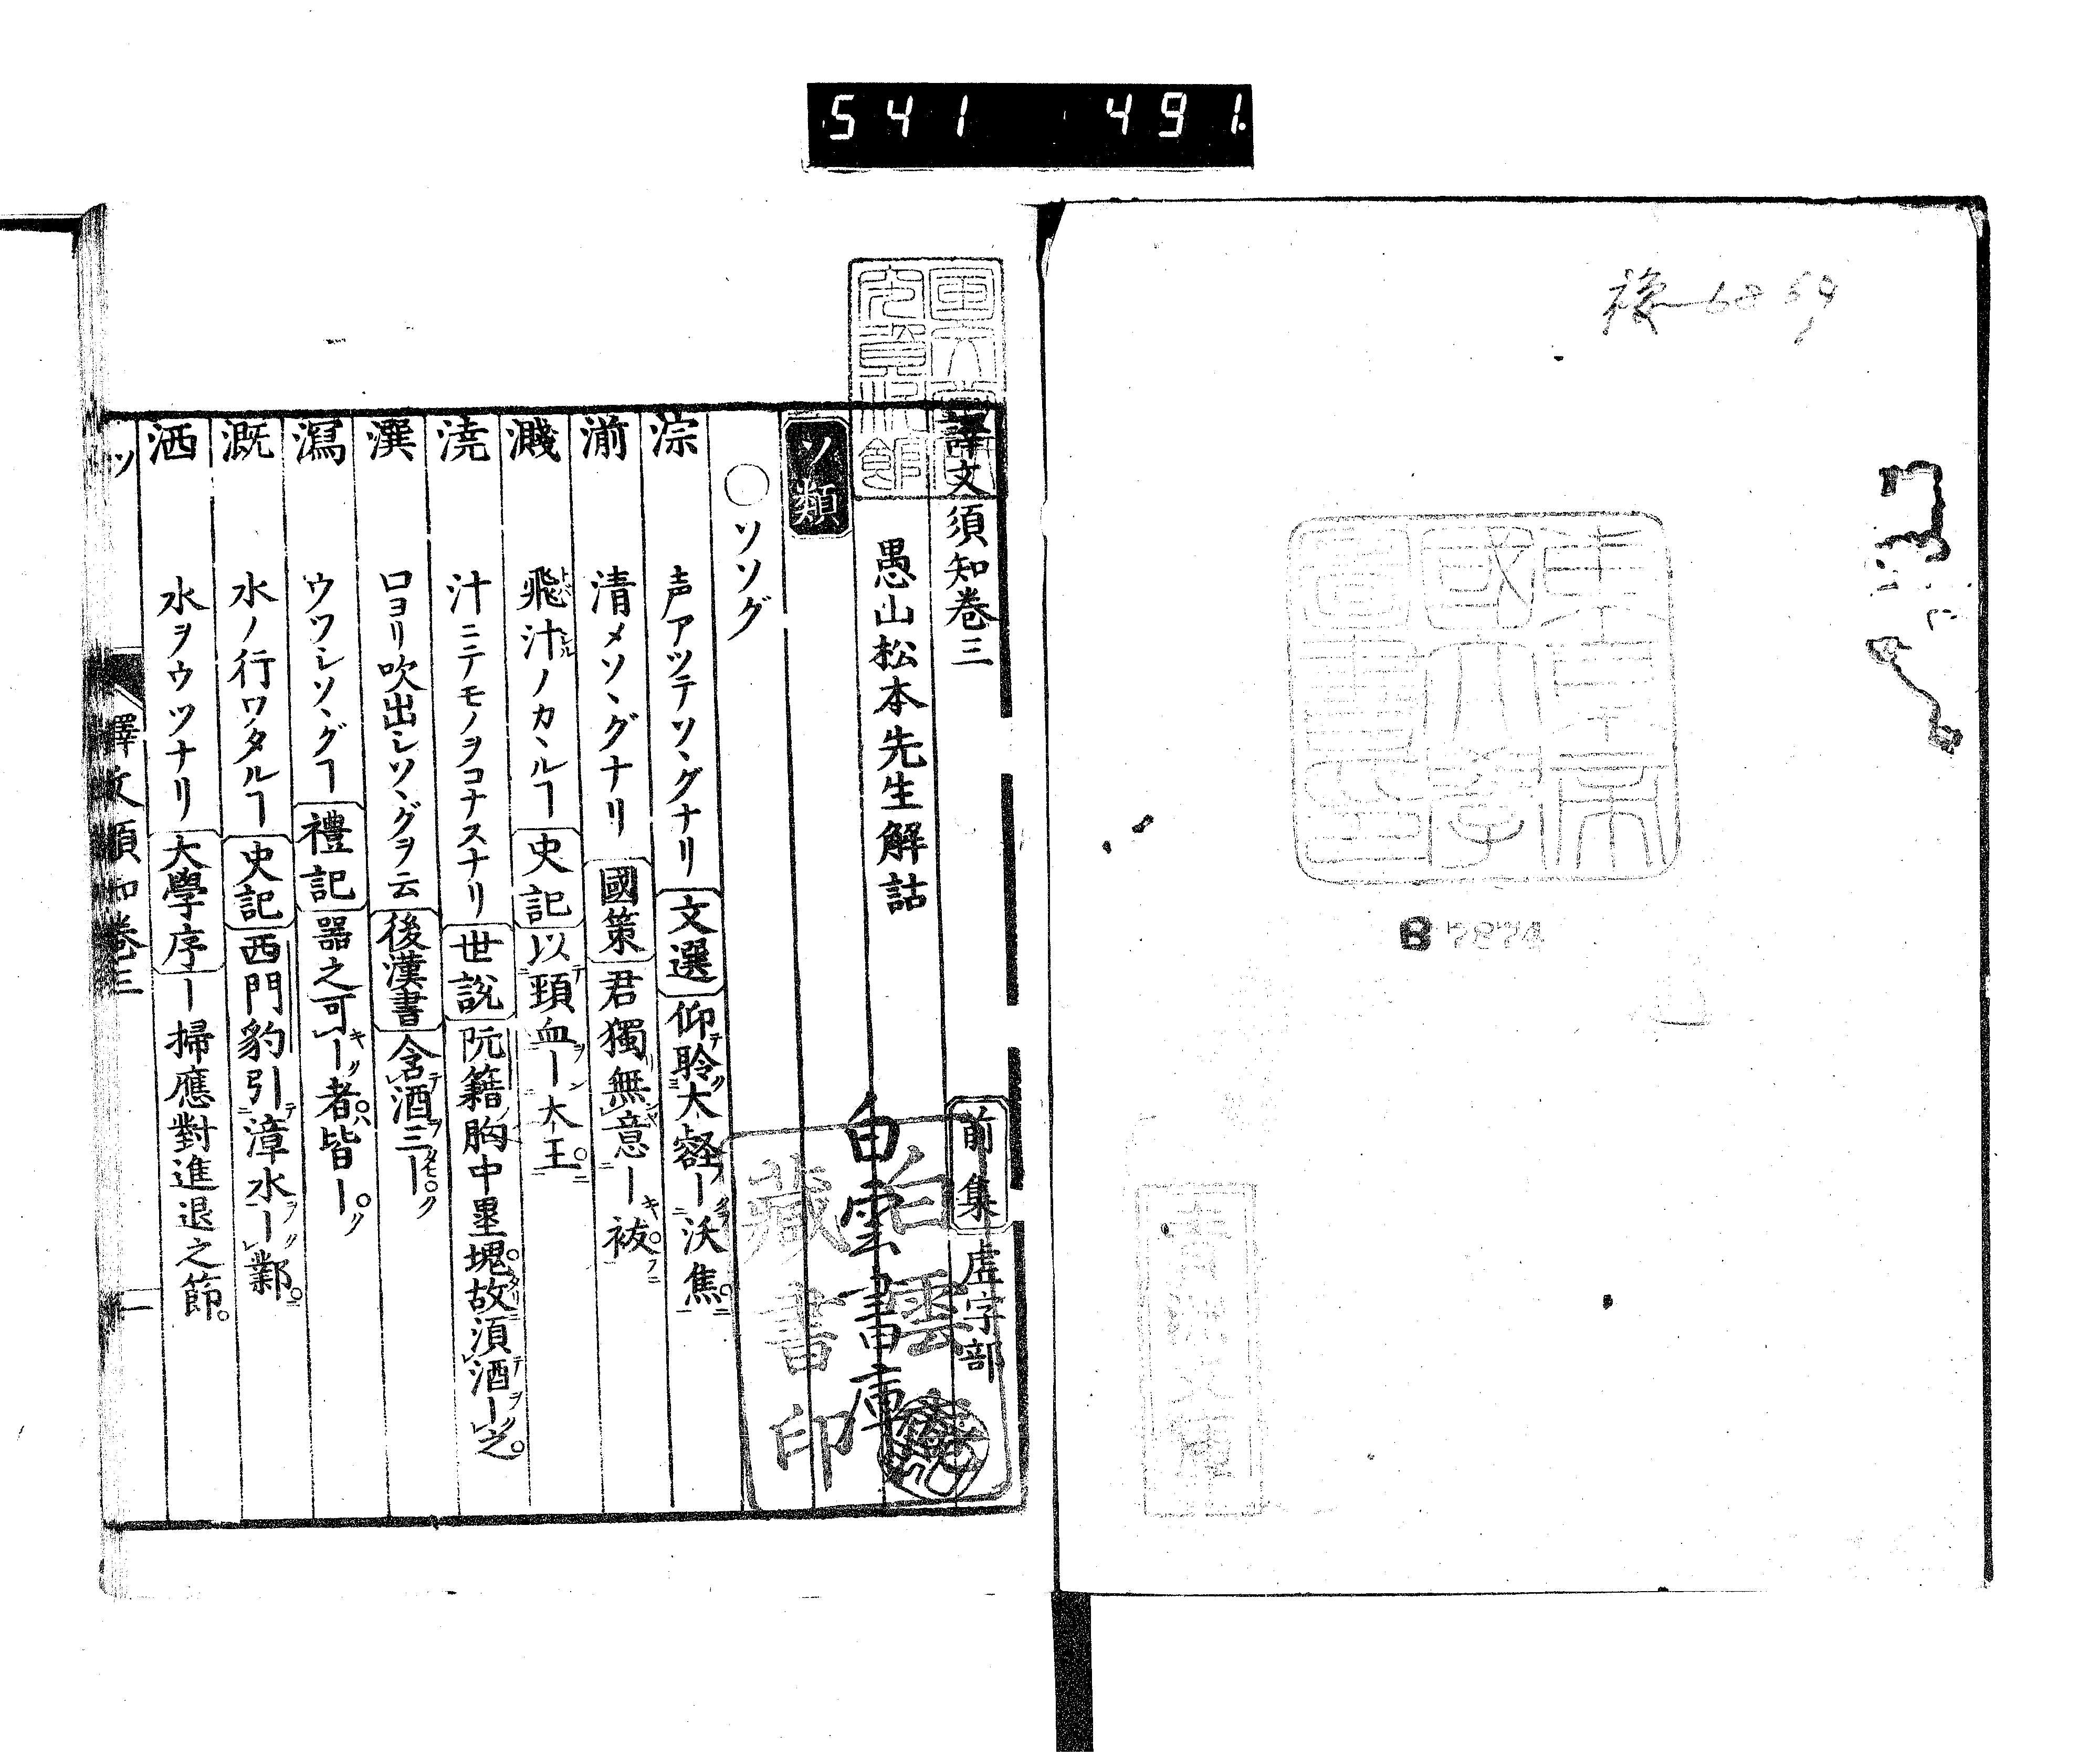 541 491
東京帝國大學圖書印
B 7874
青洲文庫
譯文須知卷三 前集 虛字部
愚山松本先生解詁
白雲書庫
白雲藏書印
ソ類
○ソソグ
淙 声アツテソヽグナリ 文選 仰聆大壑ー沃焦
湔 清メソヽグナリ 國策 君獨無意ー祓
濺 飛汁ノカヽルヿ 史記 以頸血ー大王
澆 汁ニテモノヲコナスナリ 世說 阮籍胸中壘塊故須酒ー之
潠 口ヨリ吹出シソヽグヲ云 後漢書 含酒三ー
瀉 ウツシソヽグヿ 禮記 器之可ー者皆ー
溉 水ノ行ワタルヿ 史記 西門豹引漳水ー鄴
洒 水ヲウツナリ 大學序 ー掃應對進退之節
ソ 譯文須知卷三 一